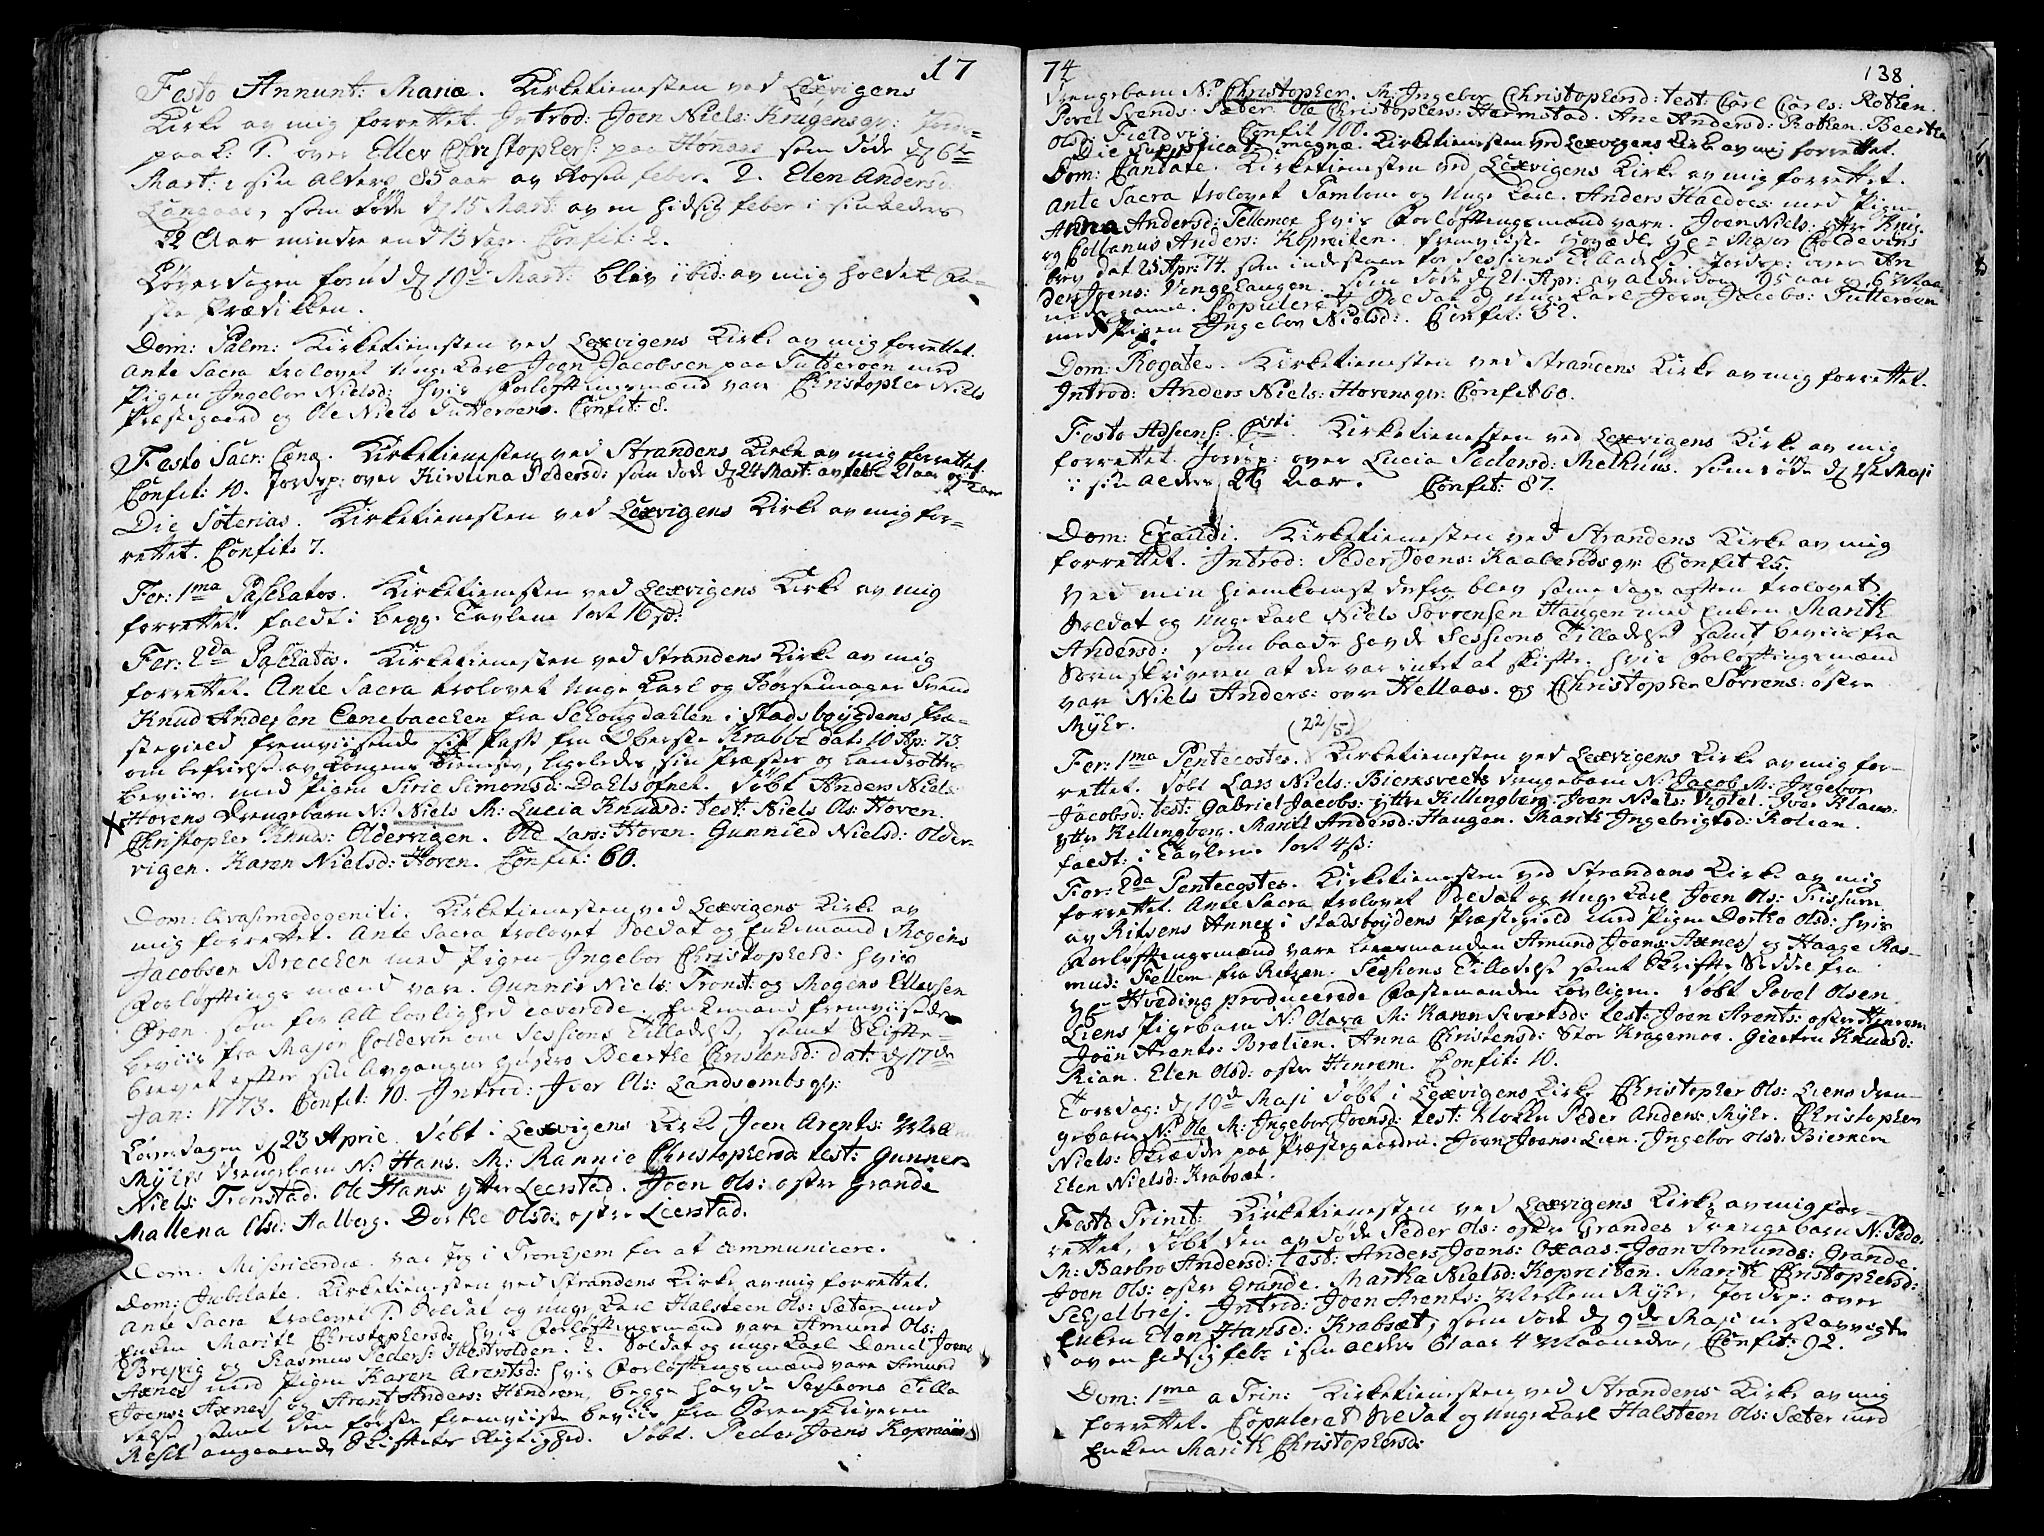 17
Festo Annunt: Mariæ. Kirketienesten ved Lexvigens
Kirke av mig forrettet. Introd: Joen Niels: Krugensgr:
paak: P. over Eller Christophers: paa Honaas som døde d 6te
Mart: i sin alders 85 aar av Rosen feber. 2. Elen Andersd:
Langaas, som døde d 15 Mart: av en hidsig feber i sin alders
22 Aar mindre end 13 dage. Confit: 2.
Løverdagen forud d 19de Mart: blev ibid: av mig holdet Fa-
ste Prædikken.
Dom: Palm: Kirketienesten ved Lexvigens Kirke av mig forrettet.
Ante Sacra trolovet Unge Karl Joen Jacobsen paa Tutterøen med
Pigen Ingebor Nielsd: hvis Forløftingsmænd vare Christopher Niels
Præstegaard og Ole Niels Tutterøens. Confit: 8.
Festo Sacr: Cœnæ. Kirketienesten ved Strandens Kirke av mig forrettet.
Confit: 10. Jordsp: over Kirstina Pedersd: som døde d 24 Mart: av febr 21 aar og
Die Soterias. Kirketienesten ved Lexvigens Kirke av mig for-
rettet. Confit: 7.
Fer: 1ma Paschatos. Kirketienesten ved Lexvigens Kirke av mig
forrettet. faldt i begge Tavlene 1 ort 16 sk:
Fer: 2da Paschatos. Kirketienesten ved Strandens Kirke av mig
forrettet. Ante Sacra trolovet Unge Karl og Børsemager Svend
Knud Andersen Canebacchen fra Schougdahlen i Stadsbøygdens Præ-
stegield fremviisende sit Pass fra Oberste Krabbe dat: 10 Ap: 73.
om befrielse av Kongens tieneste, ligeledes sin Præstes og Landrotts
beviis. med Pigen Sirie Simonsd: Dahlsøfnet. Døbt Anders Niels:
X Hovens Drengebarn N: Niels M: Lucia Knudsd: test: Niels Ols: Hoven.
Christopher Knuds: Oldervigen. Ole Lars: Hoven. Gunnild Nielsd: Older-
vigen. Karen Nielsd: Hoven. Confit: 60.
Dom: Qvasimodogeniti. Kirketienesten ved Lexvigens Kirke av
mig forrettet. Ante Sacra trolovet Soldat og Enkemand Mogens
Jacobsen Brecchen med Pigen Ingebor Christophersd: hvis
Forløftings mænd vare Gunnis Niels: Tronst: og Mogens Ellevsen
Øren som for all lovlighed caverede. Enkemand fremviisede
beviis fra Major Coldevin om Sessions Tilladelse, samt Skifte-
brevet efter sin avgangne hustro Beerthe Christensd: dat: d 17de
Jan: 1773. Confit: 10. Introd: Iver Ols: Landsembsgr:
Løverdagen d 23 April. Døbt i Lexvigens Kirke Joen Arents: Mellem
Myhrs Drengebarn N: Hans. M: Rannie Christophersd: test: Gunner
Niels: Tronstad. Ole Hans: yttre Leerstad. Joen Ols: østre Grande
Mallena Olsd: Halberg. Dorthe Olsd: østre Leerstad.
Dom: Misericordiæ. var Jeg i Tronhjem for at communicere.
Dom: Jubilate. Kirketienesten ved Strandens Kirke av mig forrettet.
Ante Sacra trolovet 1. Soldat og Unge Karl Halsteen Ols: Sæter med
Enken Marith Christophersd: hvis Forløftingsmænd vare Amund Ols:
Brevig og Rasmus Peders: Hestvolden. 2. Soldat og unge Karl Daniel Joens
Axnes med Pigen Karen Arentsd: hvis Forløftingsmænd vare Amund
Joens: Axnes og Arent Anders: Hindrem, begge havde Sessions Tilla
delse samt den første fremviiste beviis fra Sorenskriveren
Resch angaaende Skiftets Rigtighed. Døbt. Peder Joens Kopraaes
74
138
Drengebarn N: Christopher. M: Ingebor Christophersd: test: Carl Carls: Rothen.
Povel Svends: Sæter. Ole Christophers: Hermstad. Ane Andersd: Rothen. Beerthe
Olsd: Fieldvig. Confit 100.
Die Supplicat: magnæ. Kirketienesten ved Lexvigens Kirke av mig forrettet.
Dom: Cantate. Kirketienesten ved Lexvigens Kirke av mig forrettet.
Ante Sacra trolovet Tambour og Unge Karl Anders Haldoes: med Pigen
Anna Andersd: Tellemoe hvis Forløftingsmænd vare Joen Niels: yttre Krug.
og Collanus Anders: Kopreiten. fremviiste Hr Major Coldevins
brev dat 25 Apr: 74. som indestaaer for Sessions Tilladelse. Jordsp: over An
der Joens: Vengelaugen som døde d 21. Apr: av alderdom 95 aar og 6 Maa
neder gamel. Copuleret Soldat og Unge Karl Joen Jacobs: Tutterøen
med Pigen Ingebor Nielsd: Confit: 52.
Dom: Rogate. Kirketienesten ved Strandens Kirke av mig forrettet.
Introd: Anders Niels: Hovensgr: Confit 60.
Festo Adscens: Christi. Kirketienesten ved Lexvigens Kirke av mig
forrettet. Jordsp: over Lucia Pedersd: Melhuus. som døde d Maji
i sin alders 26 aar. Confit: 87.
Dom: Exaudi. Kirketienesten ved Strandens Kirke av mig
forrettet. Introd: Peder Joens: Kaaberødsgr: Confit 25.
Ved min hiemkomst derfra blev samme dags aften trolovet
Soldat og Unge Karl Niels Sørrensen Haugen med Enken Marith
Andersd: som baade havde Sessions Tilladelse samt beviis fra
Sorenskriveren at der var intet at skifte. hvis Forløftingsmænd
var Niels Anders: øvre Hellaas. og Christopher Sørrens: østre
Myhr.
(22/5)
Fer: 1ma Pentecostes. Kirketienesten ved Lexvigens Kirke av mig for-
rettet. Døbt Lars Niels: Biernsveets Drengebarn N: Jacob M: Ingebor
Jacobsd: test: Gabriel Jacobs: yttre Killingberg. Joen Niels: Vigtel. Iver Klaus:
yttre Killingberg. Marit Andersd: Haugen. Marith Ingebrigtsd: Rolien.
faldt: i Tavlerne 1 ort 4 sk:
Fer: 2da Pentecostes. Kirketienesten ved Strandens Kirke av mig
forrettet. Ante Sacra trolovet Soldat og Unge Karl Joen Ols: Frissum
av Ritsens Annex i Stadsbøydens Præstegield med Pigen Dorthe Olsd: hvis
Forløftingsmænd vare Leensmanden Amund Joens: Axnes og Haage Ras-
mus: Fellem fra Ritzen. Sessions Tilladelse samt Skifte Seddel fra
Hr Hveding producerede Fæstemanden lovligen. Døbt Povel Olsen
Liens Pigebarn N: Olava M: Karen Sivertsd: test: Joen Arents: østre Henrem
Joen Arents: Brolien. Anna Christensd: Stor Kragemoe. Giertru Knudsd:
Rian. Elen Olsd: østre Henrem. Confit: 10.
Torsdag: d 19de Maji døbt i Lexvigens Kirke Christopher Ols: Liens Dren-
gebarn N: Ole M: Ingebor Joensd: test: Klokker Peder Anders: Myhr. Christopher
Niels: Skrædder paa Præstegaarden. Joen Joens: Lien. Ingebor Olsd: Biernem
Elen Nielsd: Krabsæt.
Festo Trinit: Kirketienesten ved Lexvigens Kirke av mig for-
rettet. Døbt den avdøde Peder Ols: østre Grandes Drengebarn N: Peder
M: Barbro Andersd: test: Anders Joens: Oxaas. Joen Amunds: Grande.
Joen Ols: østre Grande. Martha Nielsd: Kopreiten. Marith Christophersd:
Schjelbrej. Introd: Joen Arents: Mellem Myhr, Jordsp: over
Enken Elen Hansd: Krabsæt, som døde d 9de Maji
av en hidsig febr i sin alders 61 aar 4 Maaneder, Confit: 92.
Dom: 1ma a Trin: Kirketienesten ved Strandens Kirke av mig
forrettet. Copuleret Soldat og Unge Karl Halsteen Ols: Sæter med
Enken Marith Christophersd: